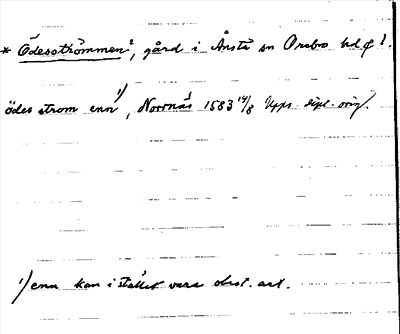 * Ödesströmmen², gård i Ånsta sn Örebro hd
ödes strom enn ¹⁾, Norrnäs 1583 14/8 Upps. dipl. orig.
¹⁾ enn kan i stället vara obest. art.